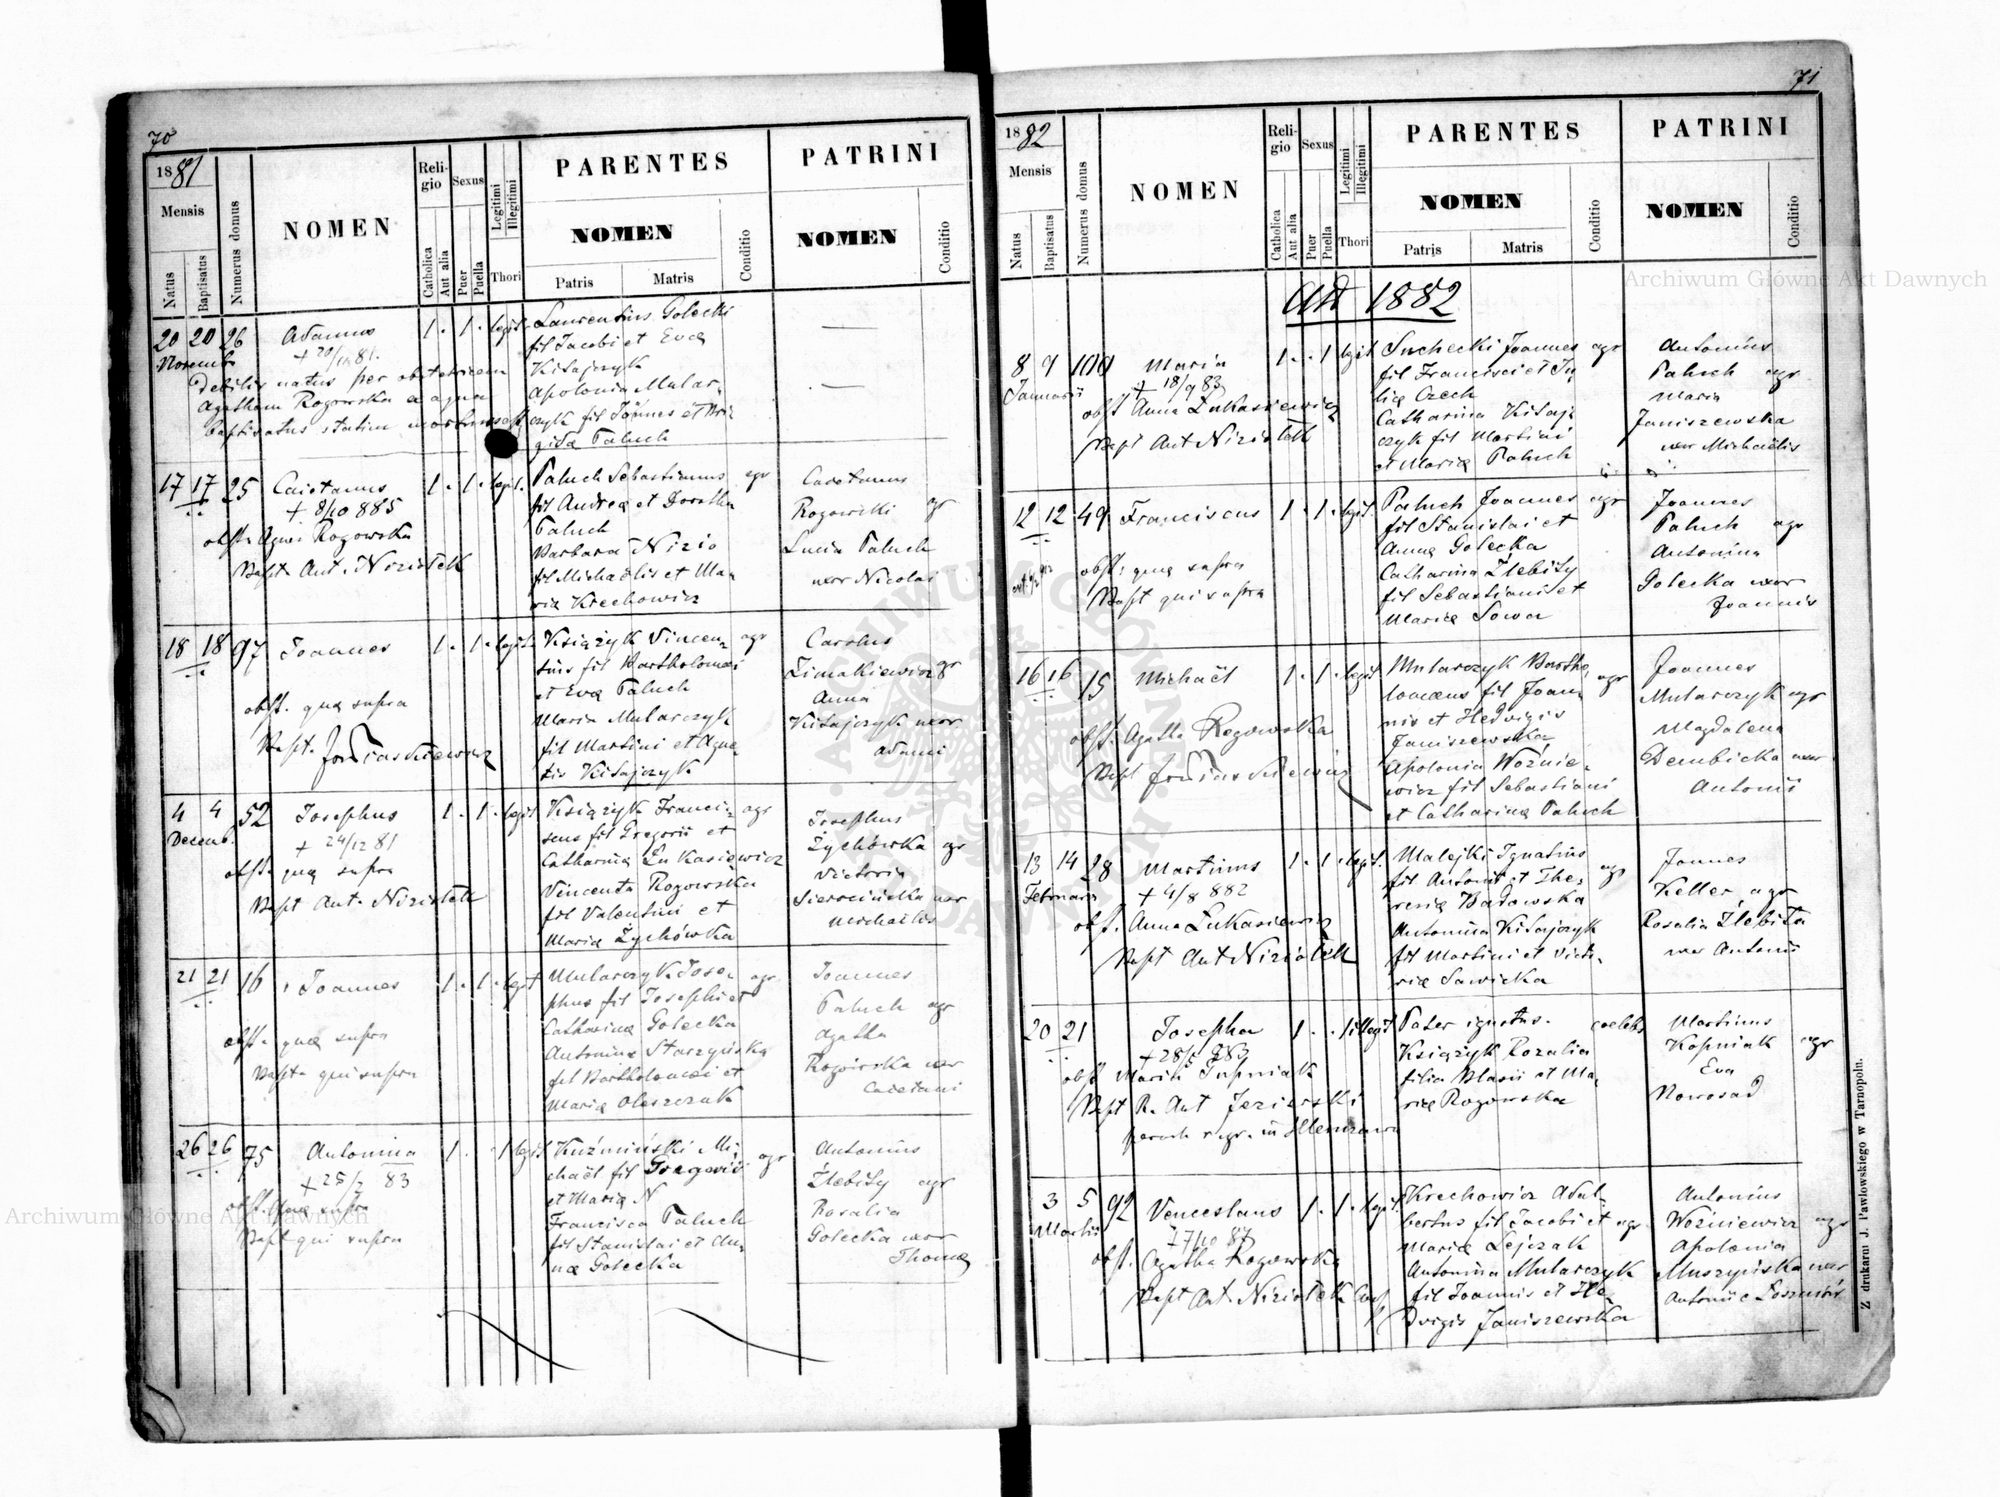 70
1881
Mensis
Natus
Baptisatus
Numerus domus
NOMEN
Religio
Catholica
Aut alia
Sexus
Puer
Puella
Legitimi
Illegitimi
Thori
PARENTES
NOMEN
Patris
Matris
Conditio
PATRINI
NOMEN
Conditio
20 20 26 Adamus 1 . 1 . legit.
Novembr
+ 20/11 81.
Debilis natus per obstetricem
Agatham Rogowska ex aqua
baptisatus statim mortuus est
Laurentius Golecki
fil Jacobi et Eva
Kitajczyk
Apolonia Mular-
czyk fil Joannes et Bri-
gida Paluch
17 17 25 Caietanus 1 . 1 . legit.
+ 8/10 885
obst. Agnes Rogowska
Bapt. Ant. Niziołek
Paluch Sebastianus agr
fil Andrea et Dorothea
Paluch
Barbara Nizio
fil Michaëlis et Ma-
ria Krechowicz
Caietanus
Rogowski agr
Lucia Paluch
uxor Nicolai
18 18 97 Joannes 1 . 1 . legit.
obst. quæ supra
Bapt.
Książyk Vincen- agr
tius fil Bartholomæi
et Eva Paluch
Maria Mularczyk
fil Martini et Agne-
tis Kitajczyk
Carolus
Zimakiewicz agr
Anna
Kitajczyk uxor
Adami
4 4 52 Josephus 1 . 1 . legit
Decemb.
+ 24/12 81
obst. quæ supra
Bapt Ant. Niziołek
Książyk Franci- agr
scus fil Gregorii et
Catharina Łukasiewicz
Vincenta Rogowska
fil Valentini et
Maria Żychówka
Josephus
Żychówka agr
Victoria
uxor
Michaëlis
21 21 16 Joannes 1 . 1 . legit
obst. quæ supra
Bapt. qui supra
Mularczyk Jose- agr
phus fil Josephi et
Catharina Golecka
Antonina Starzyńska
fil Bartholomæi et
Maria Oleszczak
Joannes
Paluch agr
Agatha
Rogowska uxor
Caietani
26 26 75 Antonina 1 . . 1 legit
+ 25/7 83
obst. quæ supra
Bapt qui supra
Kuźmiński Mi- agr
chaël fil Gregorii
et Maria N
Francisca Paluch
fil Stanislai et An-
na Golecka
Antonius
Zlebity agr
Rosalia
Golecka uxor
Thoma
71
1882
Mensis
Natus
Baptisatus
Numerus domus
NOMEN
Religio
Catholica
Aut alia
Sexus
Puer
Puella
Legitimi
Illegitimi
Thori
PARENTES
NOMEN
Patris
Matris
Conditio
PATRINI
NOMEN
Conditio
AD 1882
8 9 100 Maria 1 . . 1 legit
Januarii
+ 18/9 83
obst Anna Łukasiewicz
Bapt Ant Niziołek
Suchecki Joannes agr
fil Francisci et Ju-
lia Czech
Catharina Kitaj-
czyk fil Martini
et Maria Paluch
Antonius
Paluch agr
Maria
Janiszewska
uxor Michaëlis
12 12 49 Franciscus 1 . 1 . legit.
obst. quæ supra
Bapt qui supra
Paluch Joannes agr
fil Stanislai et
Anna Golecka
Catharina Zlebity
fil Sebastiani et
Maria Sowa
Joannes
Paluch agr
Antonina
Golecka uxor
Joannis
16 16 15 Michaël 1 . 1 . legit
obst. Agatha Rogowska
Bapt
Mularczyk Bartho- agr
lomæus fil Joan-
nis et Hedvigis
Janiszewska
Apolonia Woźnie-
wicz fil Sebastiani
et Catharina Paluch
Joannes
Mularczyk agr
Magdalena
Dembicka uxor
Antonii
13 14 28 Martinus 1 . 1 . legit.
Februarii
+ 4/8 882
obst. Anna Łukasiewicz
Bapt Ant Niziołek
Malejki Ignatius agr
fil Antonii et The-
resia Badowska
Antonina Kitajczyk
fil Martini et Victo-
ria Sawicka
Joannes
Keller agr
Rosalia Zlebita
uxor Antonii
20 21 Josepha 1 . . 1 illegit
obst Maria Tupniak
Bapt R. Ant Jezierski
Pater ignotus. coelebs
Książyk Rozalia
filia Blasii et Ma-
ria Rogowska
Martinus
Kopniak agr
Eva
Nowosad
3 5 92 Venceslaus 1 . 1 . legit.
Martii
obst. Agatha Rogowska
Bapt Ant. Niziołek
Krechowicz Adal-
bertus fil Jacobi et agr
Maria Lejczak
Antonina Mularczyk
fil Joannis et He-
dvigis Janiszewska
Antonius
Woźniewicz agr
Apolonia
Muszyńska uxor
Antonii
Z drukarni J. Pawłowskiego w Tarnopolu.
Archiwum Główne Akt Dawnych
Archiwum Główne Akt Dawnych